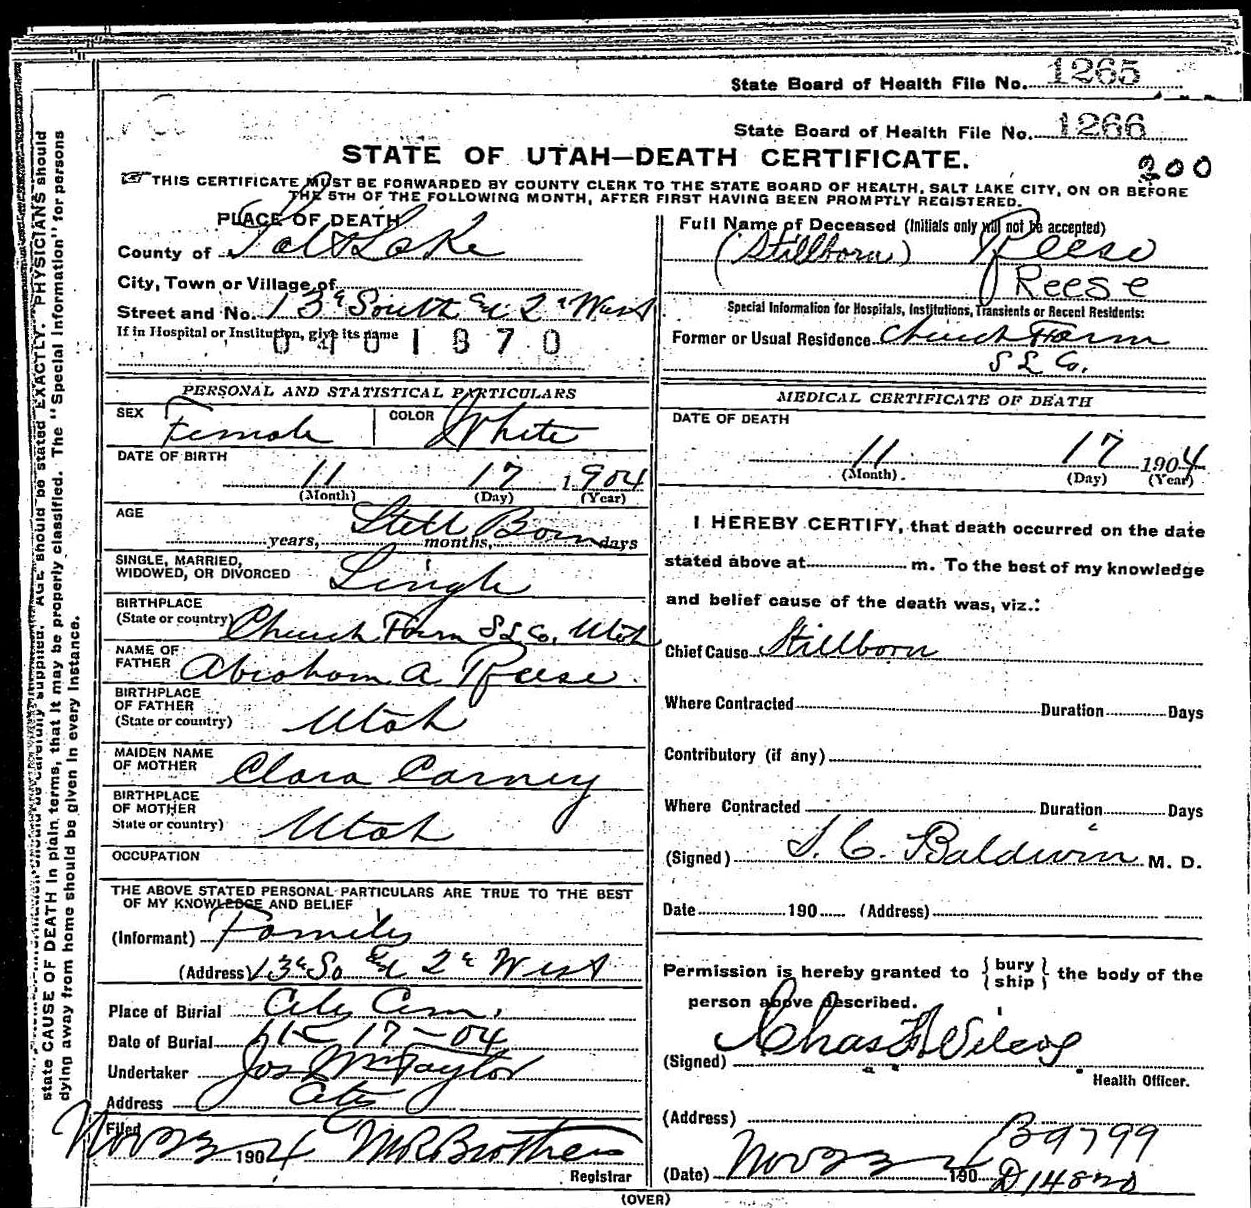 State Board of Health File No. 1265
State Board of Health File No. 1266
STATE OF UTAH—DEATH CERTIFICATE.
300
THIS CERTIFICATE MUST BE FORWARDED BY COUNTY CLERK TO THE STATE BOARD OF HEALTH, SALT LAKE CITY, ON OR BEFORE
THE 5TH OF THE FOLLOWING MONTH, AFTER FIRST HAVING BEEN PROMPTLY REGISTERED.
state CAUSE OF DEATH in plain terms, that it may be properly classified. The "Special Information" for persons
dying away from home should be given in every instance.
AGE should be stated EXACTLY. PHYSICIANS should
PLACE OF DEATH
County of Salt Lake
City, Town or Village of
Street and No. 13th South & 2d West
If in Hospital or Institution, give its name
0401370
PERSONAL AND STATISTICAL PARTICULARS
SEX Female COLOR White
DATE OF BIRTH
11 17 1904
(Month) (Day) (Year)
AGE Still Born
years, months, days
SINGLE, MARRIED,
WIDOWED, OR DIVORCED Single
BIRTHPLACE
(State or country) Church Farm S L Co. Utah
NAME OF
FATHER Abraham A Reese
BIRTHPLACE
OF FATHER
(State or country) Utah
MAIDEN NAME
OF MOTHER Clara Carney
BIRTHPLACE
OF MOTHER
State or country) Utah
OCCUPATION
THE ABOVE STATED PERSONAL PARTICULARS ARE TRUE TO THE BEST
OF MY KNOWLEDGE AND BELIEF
(Informant) Family
(Address) 13th So & 2d West
Place of Burial City Cem.
Date of Burial 11- 17-04
Undertaker Jos Wm Taylor
Address City
Filed Nov 23 1904 M R Brothers
Registrar
Full Name of Deceased (Initials only will not be accepted)
(Stillborn) Reese
Reese
Special Information for Hospitals, Institutions, Transients or Recent Residents:
Former or Usual Residence Church Farm
S L Co.
MEDICAL CERTIFICATE OF DEATH
DATE OF DEATH
11 17 1904
(Month). (Day) (Year)
I HEREBY CERTIFY, that death occurred on the date
stated above at m. To the best of my knowledge
and belief cause of the death was, viz.:
Chief Cause Stillborn
Where Contracted Duration Days
Contributory (if any)
Where Contracted Duration Days
(Signed) S. C. Baldwin M. D.
Date 190 (Address)
Permission is hereby granted to {bury
ship} the body of the
person above described.
(Signed) Chas F Wilcox
Health Officer.
(Address)
B9799
(Date) Nov 23 1904 D14820
(OVER)